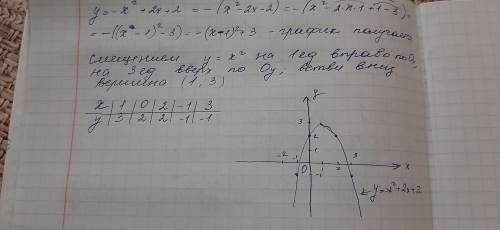 y=-x²+2x+2 = -(x²-2x-2)=-(x²-2·x·1+1-3)=
=-((x-1)²-3)=-(x-1)²+3 - график получаем
смещением y=x² на 1ед вправо по Ox,
на 3ед вверх по Oy, ветви вниз
вершина (1, 3)
x | 1 | 0 | 2 | -1 | 3
y | 3 | 2 | 2 | -1 | -1
y
3
2
1
-2 -1 0 1 3 x
-1
y=-x²+2x+2